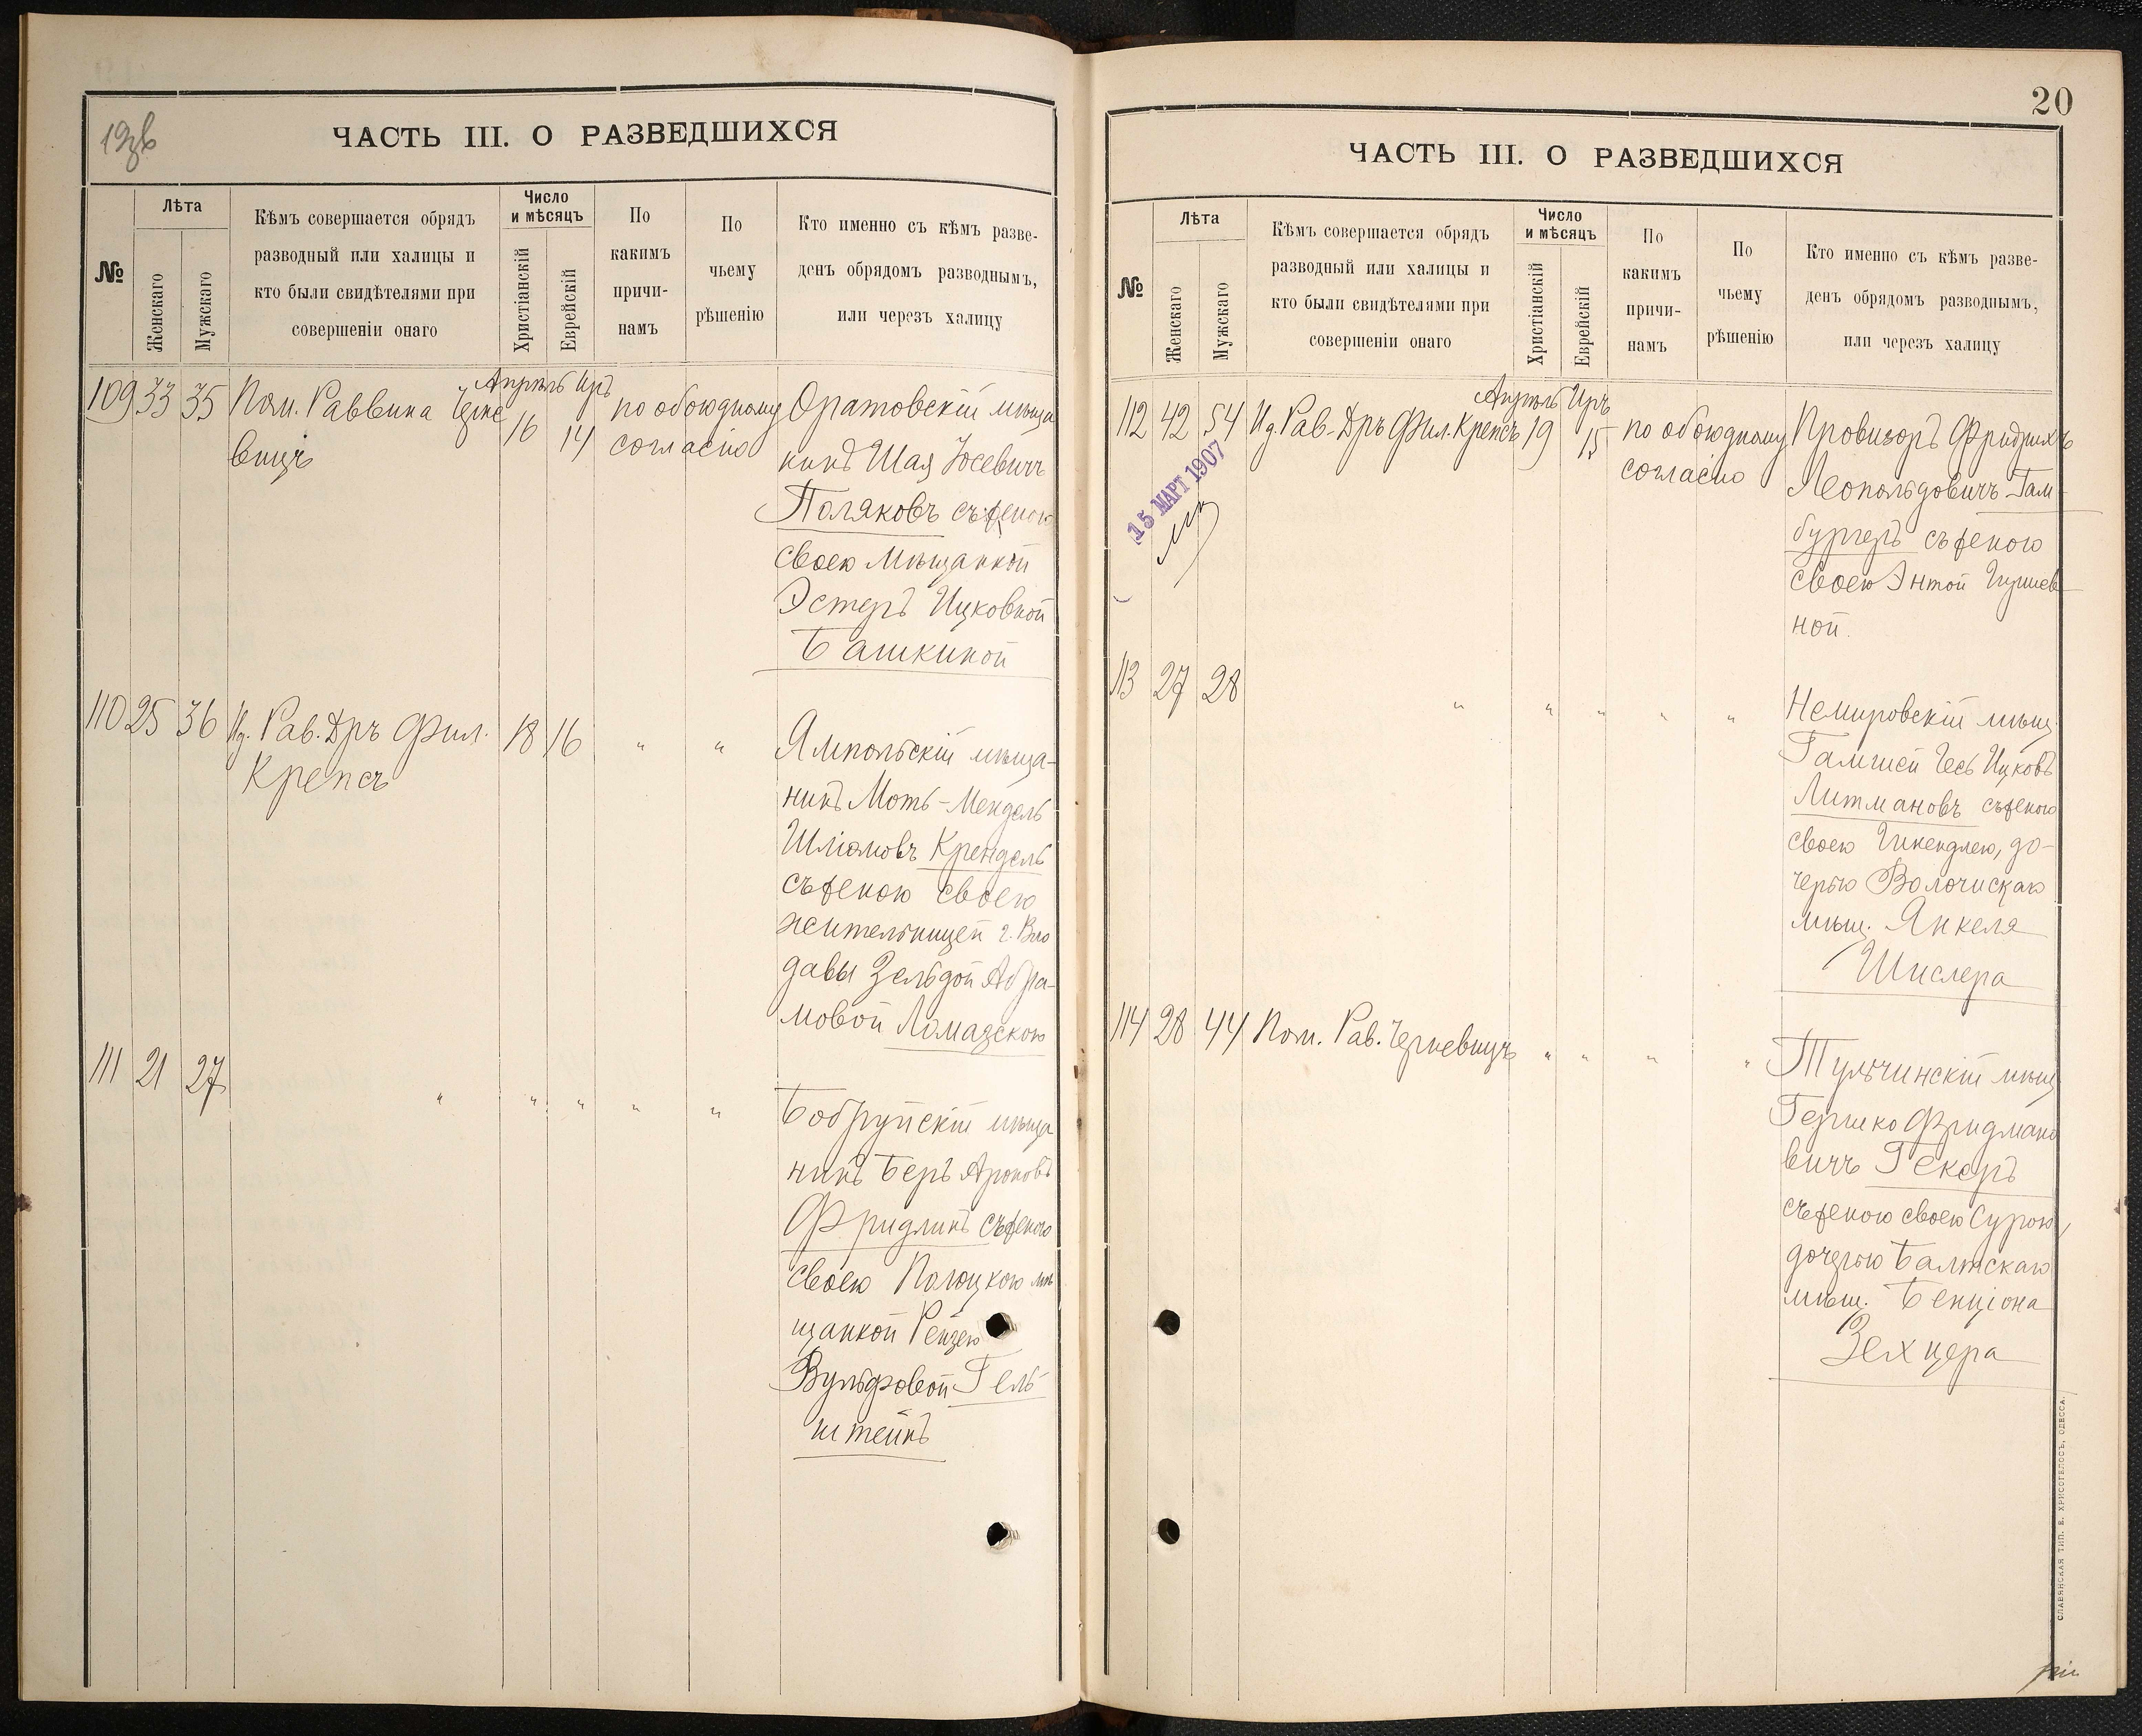 ЧАСТЬ III. О РАЗВЕДШИХСЯ
№
Лѣта
Женскаго
Мужскаго
Кѣмъ совершается обрядъ
разводный или халицы и
кто были свидѣтелями при
совершеніи онаго
Число
и мѣсяцъ
Христіанскій
Еврейскій
По
какимъ
причи-
намъ
По
чьему
рѣшенію
Кто именно съ кѣмъ разве-
денъ обрядомъ разводнымъ,
или черезъ халицу
Апрѣль Иръ
109 33 35 Пом. Раввина Черне
вицъ
16 14
по обоюдному
согласію
Оратовскій мѣща
нинъ Шая Іосевичъ
Поляковъ съ женою
своею мѣщанкой
Эстеръ Ицковной
Башкиной
110 25 36 Ид. Рав. Дръ Фил.
Крепсъ
18 16 " "
Ямпольскій мѣща-
нинъ Моть-Мендель
Шліомовъ Крендель
съ женою своею
жительницей г. Вло
давы Зельдой Абра-
мовой Ломазскою
111 21 27 " " " " "
Бобруйскій мѣща
нинъ Беръ Ароновъ
Фридлинъ съ женою
своею Полоцкою мѣ
щанкой Рейзею
Вульфовой Гель
штейнъ
20
ЧАСТЬ III. О РАЗВЕДШИХСЯ
№
Лѣта
Женскаго
Мужскаго
Кѣмъ совершается обрядъ
разводный или халицы и
кто были свидѣтелями при
совершеніи онаго
Число
и мѣсяцъ
Христіанскій
Еврейскій
По
какимъ
причи-
намъ
По
чьему
рѣшенію
Кто именно съ кѣмъ разве-
денъ обрядомъ разводнымъ,
или черезъ халицу
Апрѣль Иръ
112 42 54 Ид. Рав. Дръ Фил. Крепсъ 19 15
по обоюдному
согласію
15 МАРТ 1907
Провизоръ Фридрихъ
Леопольдовичъ Гам-
бургеръ съ женою
своею Энтой Гершев
ной.
113 27 28 " " " " "
Немировскій мѣщ.
Ицковъ
Литмановъ съ женою
своею до-
черью Волочискаго
мѣщ. Янкеля
Шислера
114 28 44 Пом. Рав. Черневицъ " " " "
Тульчинскій мѣщ
Гершко Фридмано
вичъ Гекеръ
съ женою своею Сурою,
дочерью Балтскаго
мѣщ. Бенціона
Зехцера
СЛАВЯНСКАЯ ТИП. Е. ХРИСОГЕЛОСЪ, ОДЕССА.